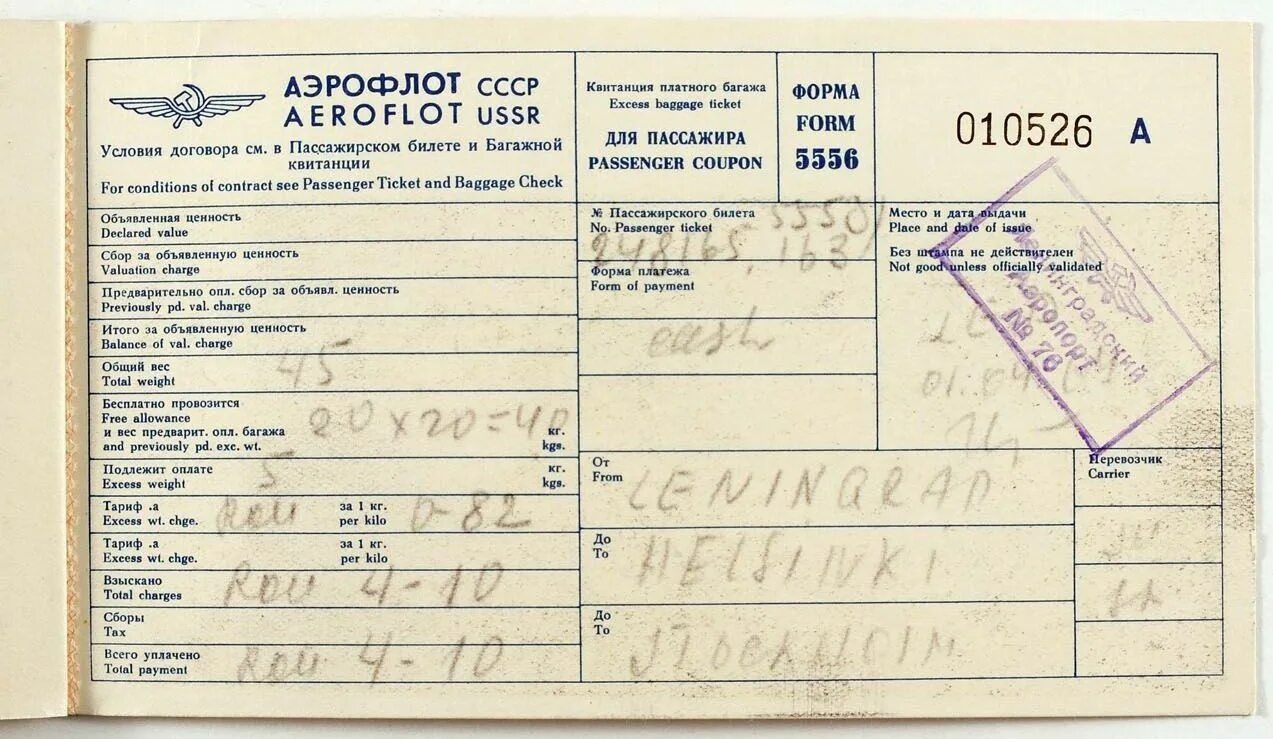 АЭРОФЛОТ СССР
AEROFLOT USSR
Условия договора см. в Пассажирском билете и Багажной
квитанции
For conditions of contract see Passenger Ticket and Baggage Check
Квитанция платного багажа
Excess baggage ticket
ДЛЯ ПАССАЖИРА
PASSENGER COUPON
ФОРМА
FORM
5556
010526 А
Объявленная ценность
Declared value
Сбор за объявленную ценность
Valuation charge
Предварительно опл. сбор за объявл. ценность
Previously pd. val. charge
Итого за объявленную ценность
Balance of val. charge
Общий вес
Total weight
45
Бесплатно провозится
Free allowance
и вес предварит. опл. багажа
and previously pd. exc. wt.
20x20=40
кг.
kgs.
Подлежит оплате
Excess weight
5
кг.
kgs.
Тариф .а
Excess wt. chge.
за 1 кг.
per kilo
0-82
Тариф .а
Excess wt. chge.
за 1 кг.
per kilo
Взыскано
Total charges
4-10
Сборы
Tax
Всего уплачено
Total payment
4-10
№ Пассажирского билета
No. Passenger ticket
55501
248165, 163
Форма платежа
Form of payment
cash
Место и дата выдачи
Place and date of issue
Без штампа не действителен
Not good unless officially validated
Ленинградский
Аэропорт
№ 76
От
From
LENINGRAD
До
To
HELSINKI
До
To
STOCKHOLM
Перевозчик
Carrier